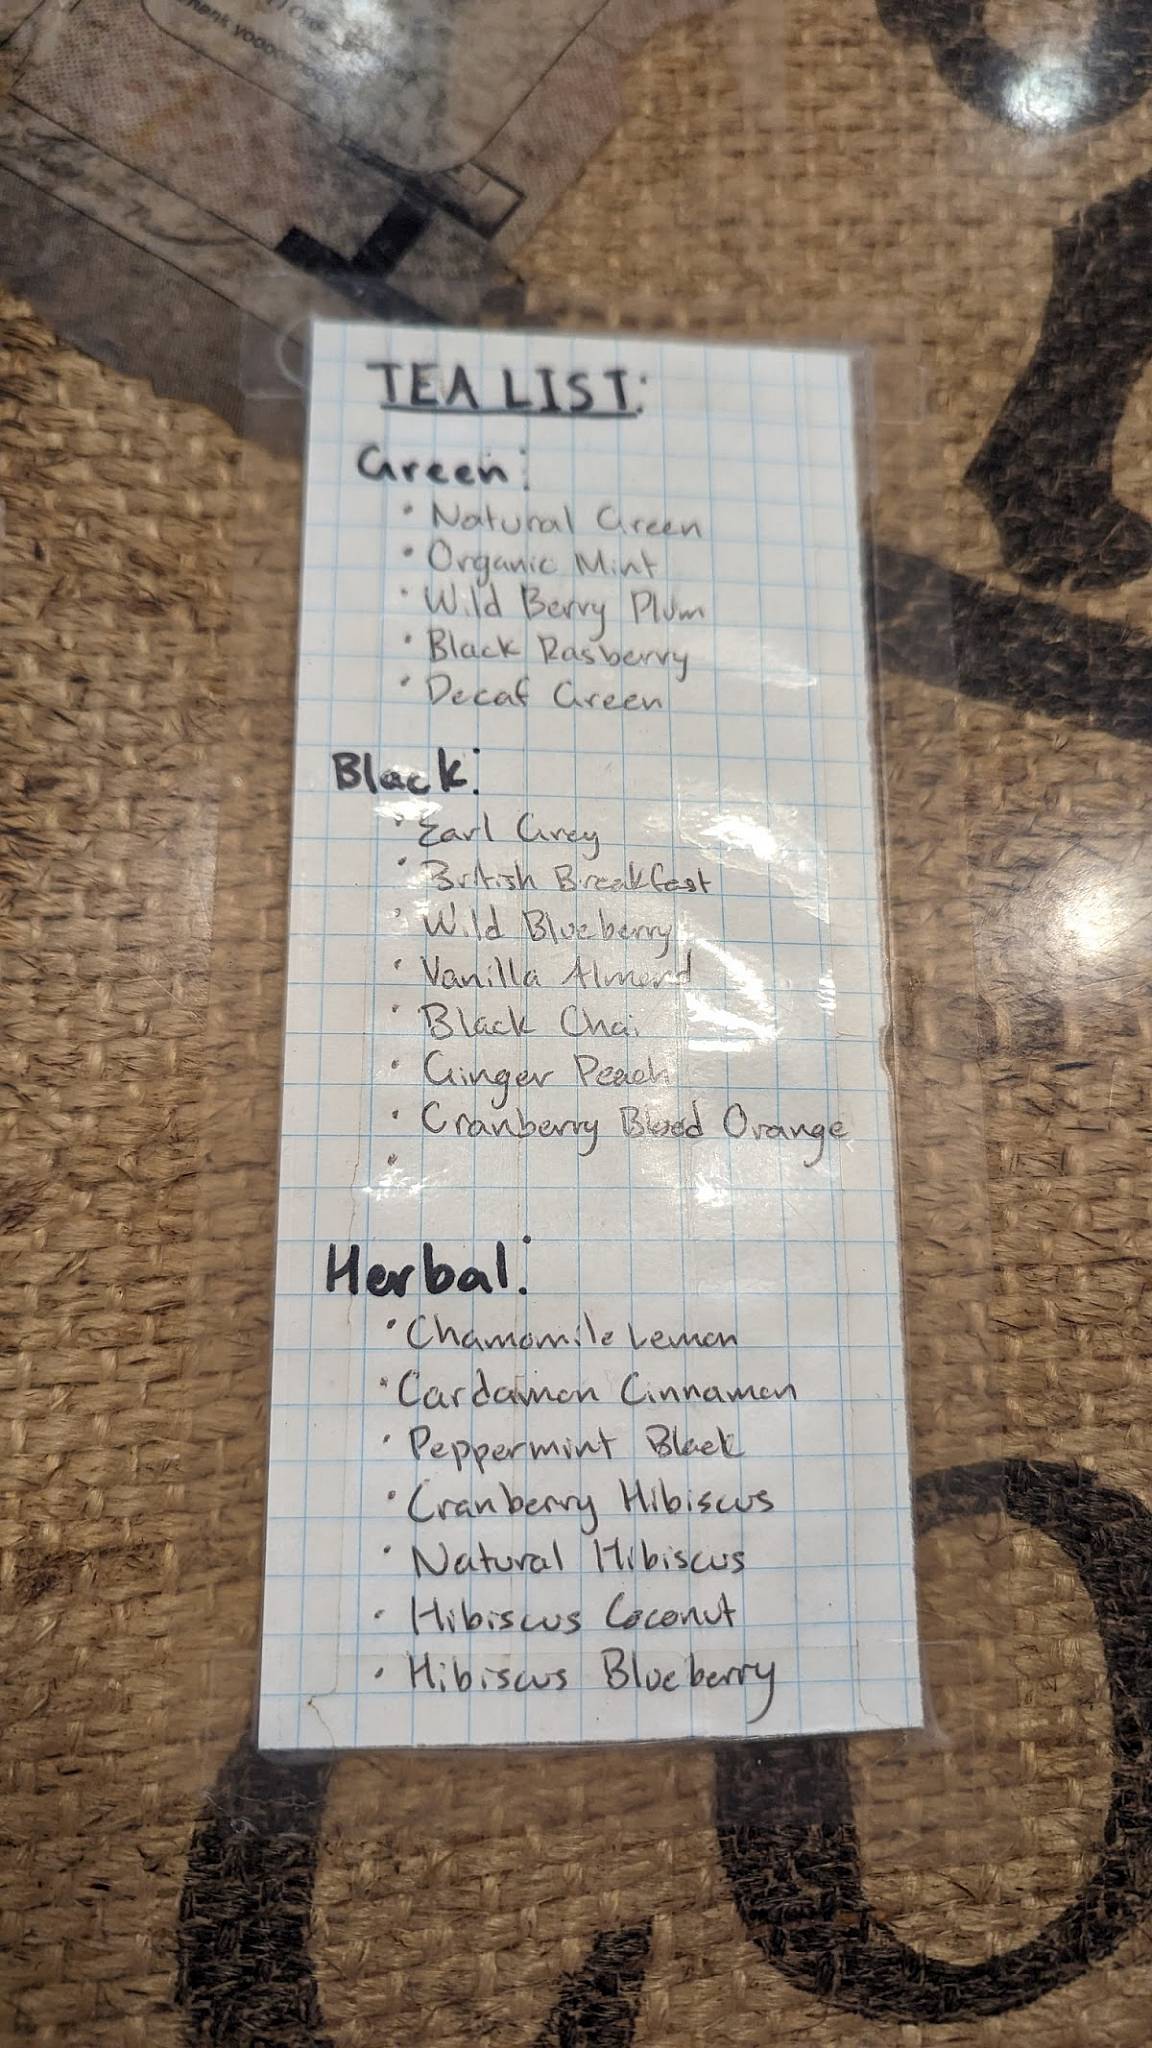 Thank yooo
TEA LIST:
Green:
• Natural Green
• Organic Mint
• Wild Berry Plum
• Black Rasberry
• Decaf Green
Black:
• Earl Grey
• British Breakfast
• Wild Blueberry
• Vanilla Almond
• Black Chai
• Ginger Peach
• Cranberry Blood Orange
•
Herbal:
• Chamomile Lemon
• Cardamon Cinnamon
• Peppermint Black
• Cranberry Hibiscus
• Natural Hibiscus
• Hibiscus Coconut
• Hibiscus Blueberry